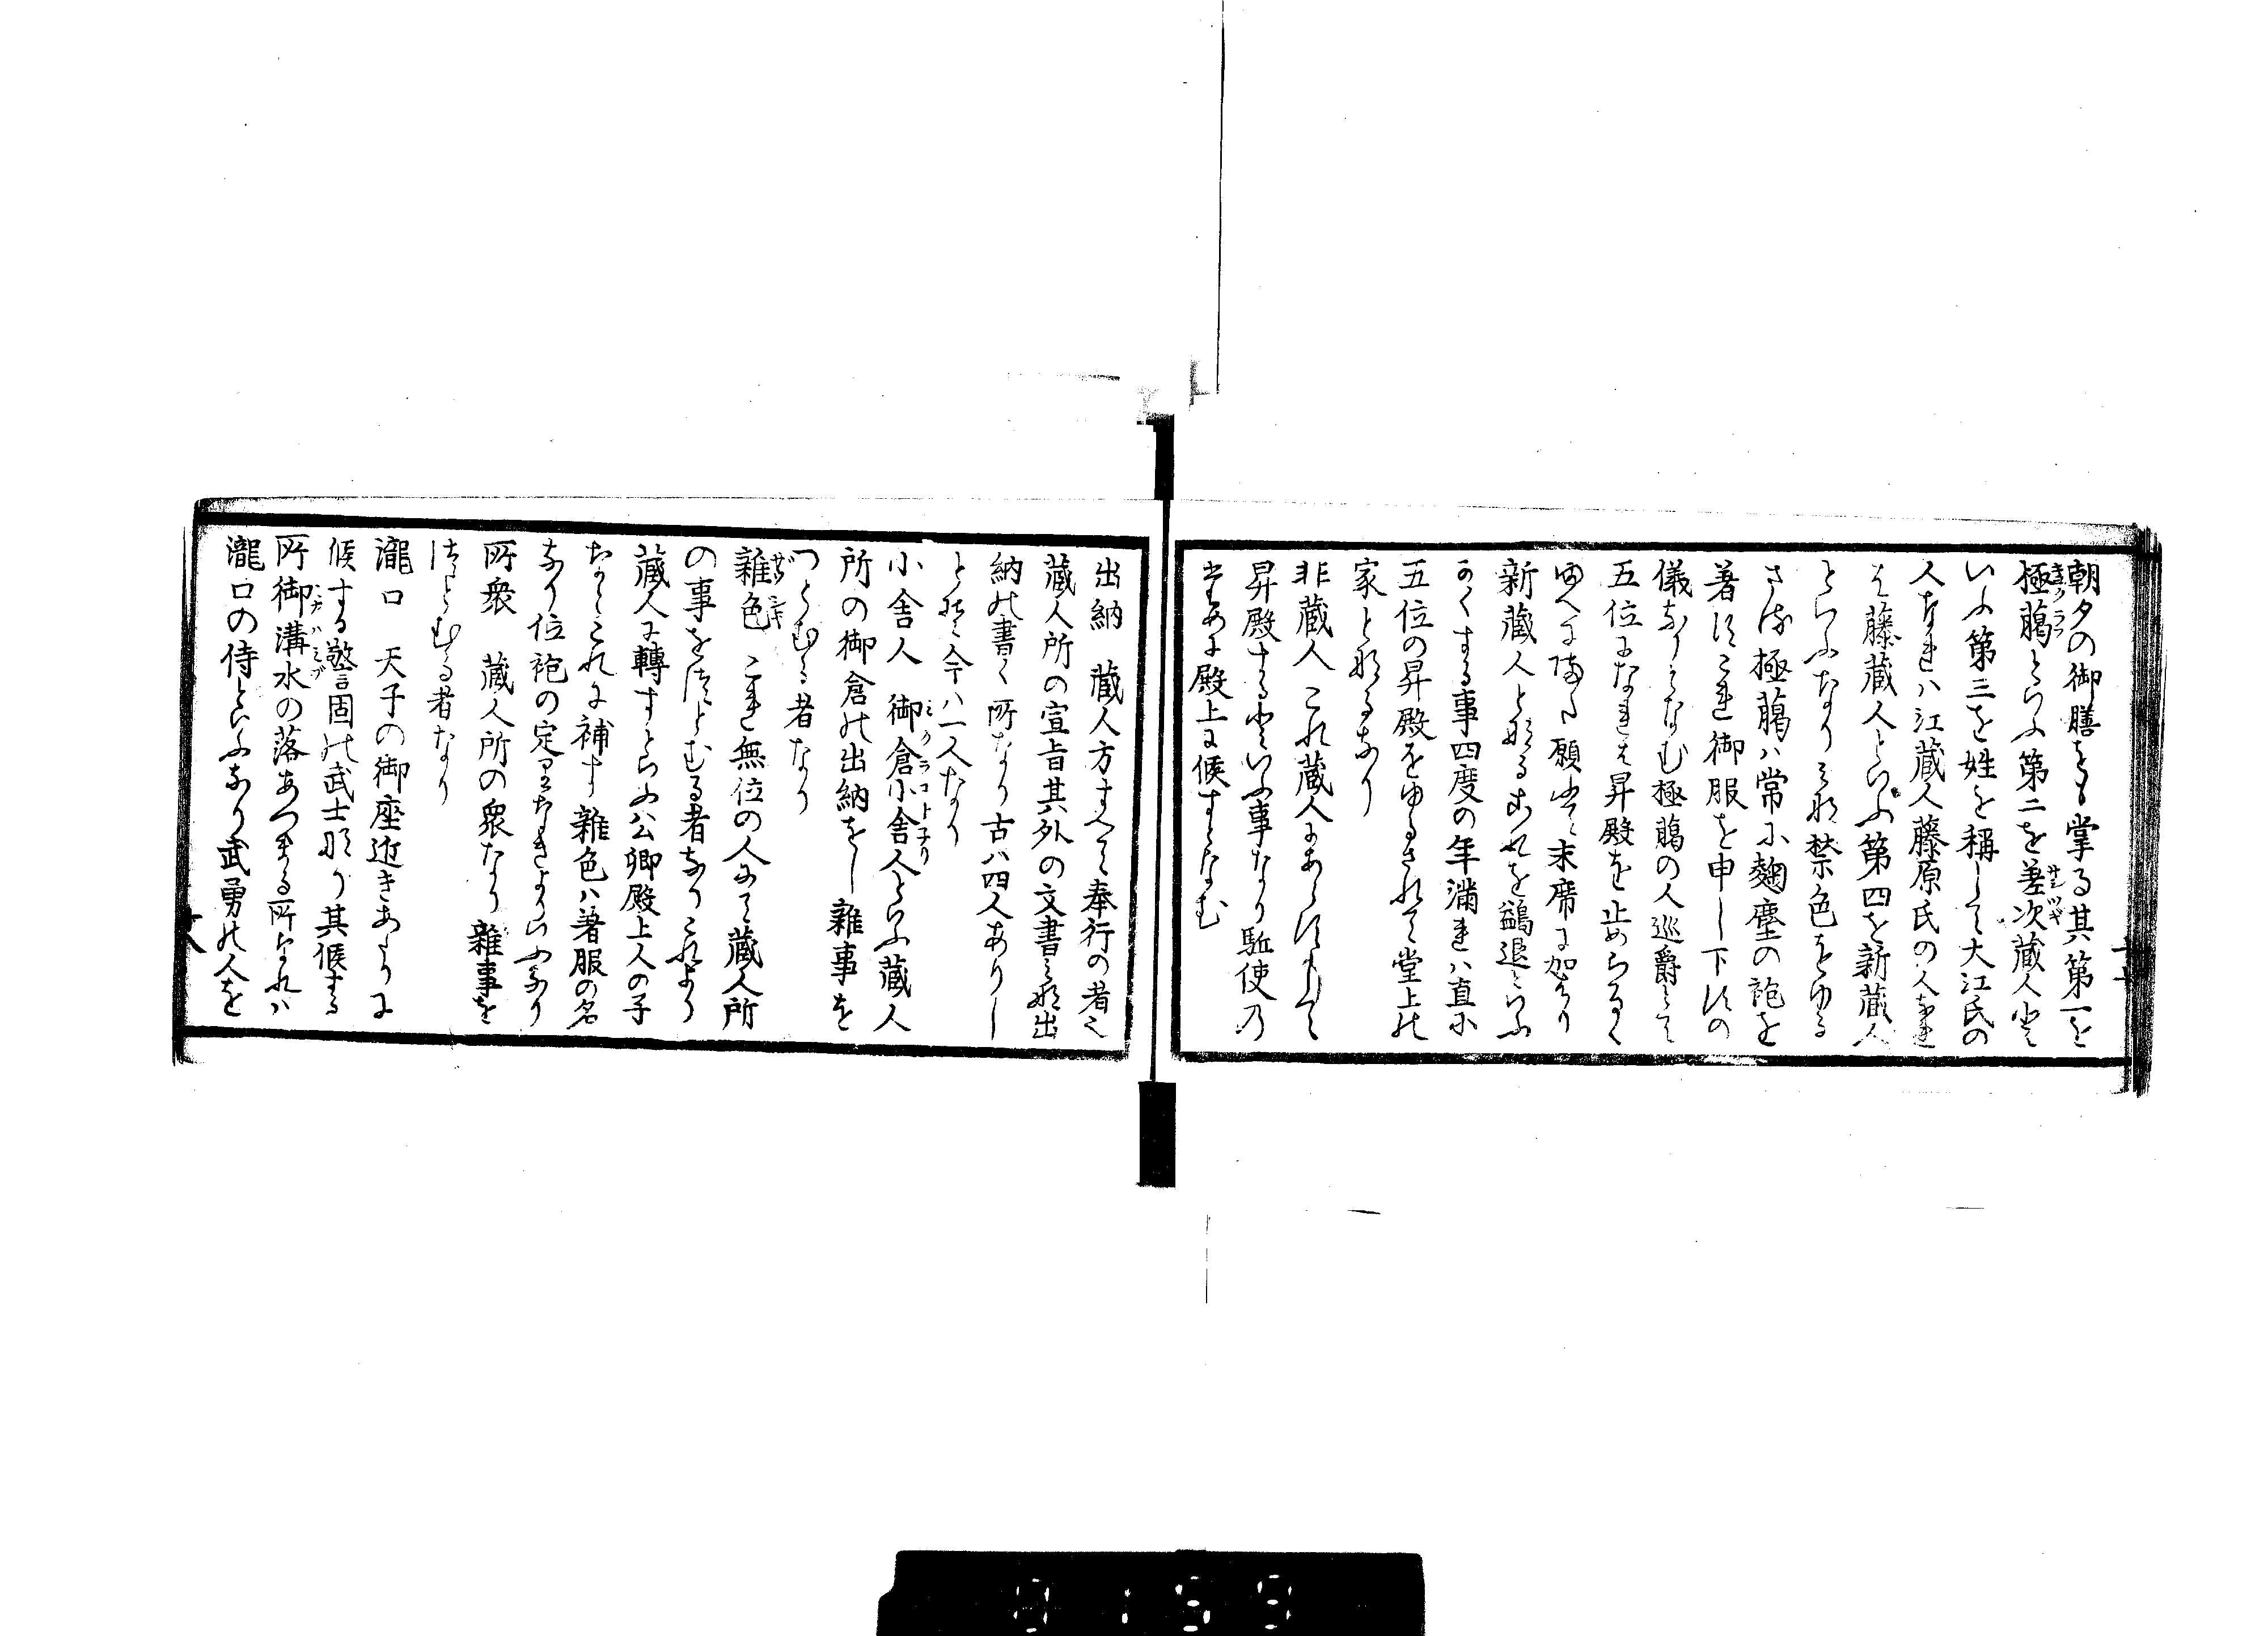 朝夕の御膳をも掌る其第一を
極﨟といふ第二を差次蔵人と
いふ第三を姓を稱して大江氏の
人なれハ江蔵人藤原氏の人なれ
は藤蔵人といふ第四を新蔵人
といふなりみな禁色をゆる
さる極﨟ハ常に麹塵の袍を
著すこれ御服を申し下すの
儀なりとなむ極﨟の人巡爵して
五位になれは昇殿を止めらるゝ
ゆへに願ひて末席に加はり
新蔵人となるこれを鷁退といふ
かくする事四度の年満れハ直に
五位の昇殿をゆるされて堂上の
家となるなり
非蔵人 これ蔵人にあらすして
昇殿するといふ事なり駈使の
ために殿上に候すとなむ
出納 蔵人方すへて奉行の者也
蔵人所の宣旨其外の文書みな出
納の書く所なり古ハ四人ありし
とそ今ハ一人なり
小舎人 御倉小舎人といふ蔵人
所の御倉の出納をし雜事を
つとむる者なり
雜色 これ無位の人にて蔵人所
の事をつとむる者なりこれより
蔵人に轉すといふ公卿殿上人の子
なとこれに補す雜色ハ著服の名
なり位袍の定りなきよりいふなり
所衆 蔵人所の衆なり雜事を
つとむる者なり
瀧口 天子の御座近きあたりに
候する警固の武士なり其候する
所御溝水の落あつまる所なれハ
瀧口の侍といふなり武勇の人を
十八